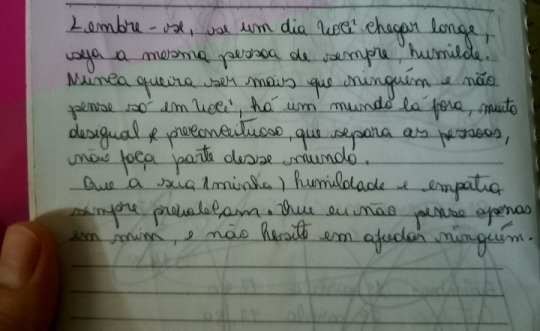 Lembre-se, se um dia você chegar longe,
seja a mesma pessoa de sempre, humilde.
Nunca queira ser mais que ninguém e não
pense só em você, há um mundo lá fora, muito
desigual e preconceituoso, que separa as pessoas,
não faça parte desse mundo.
Que a sua (minha) humildade e empatia
sempre prevaleçam. Que eu não pense apenas
em mim, e não hesite em ajudar ninguém.